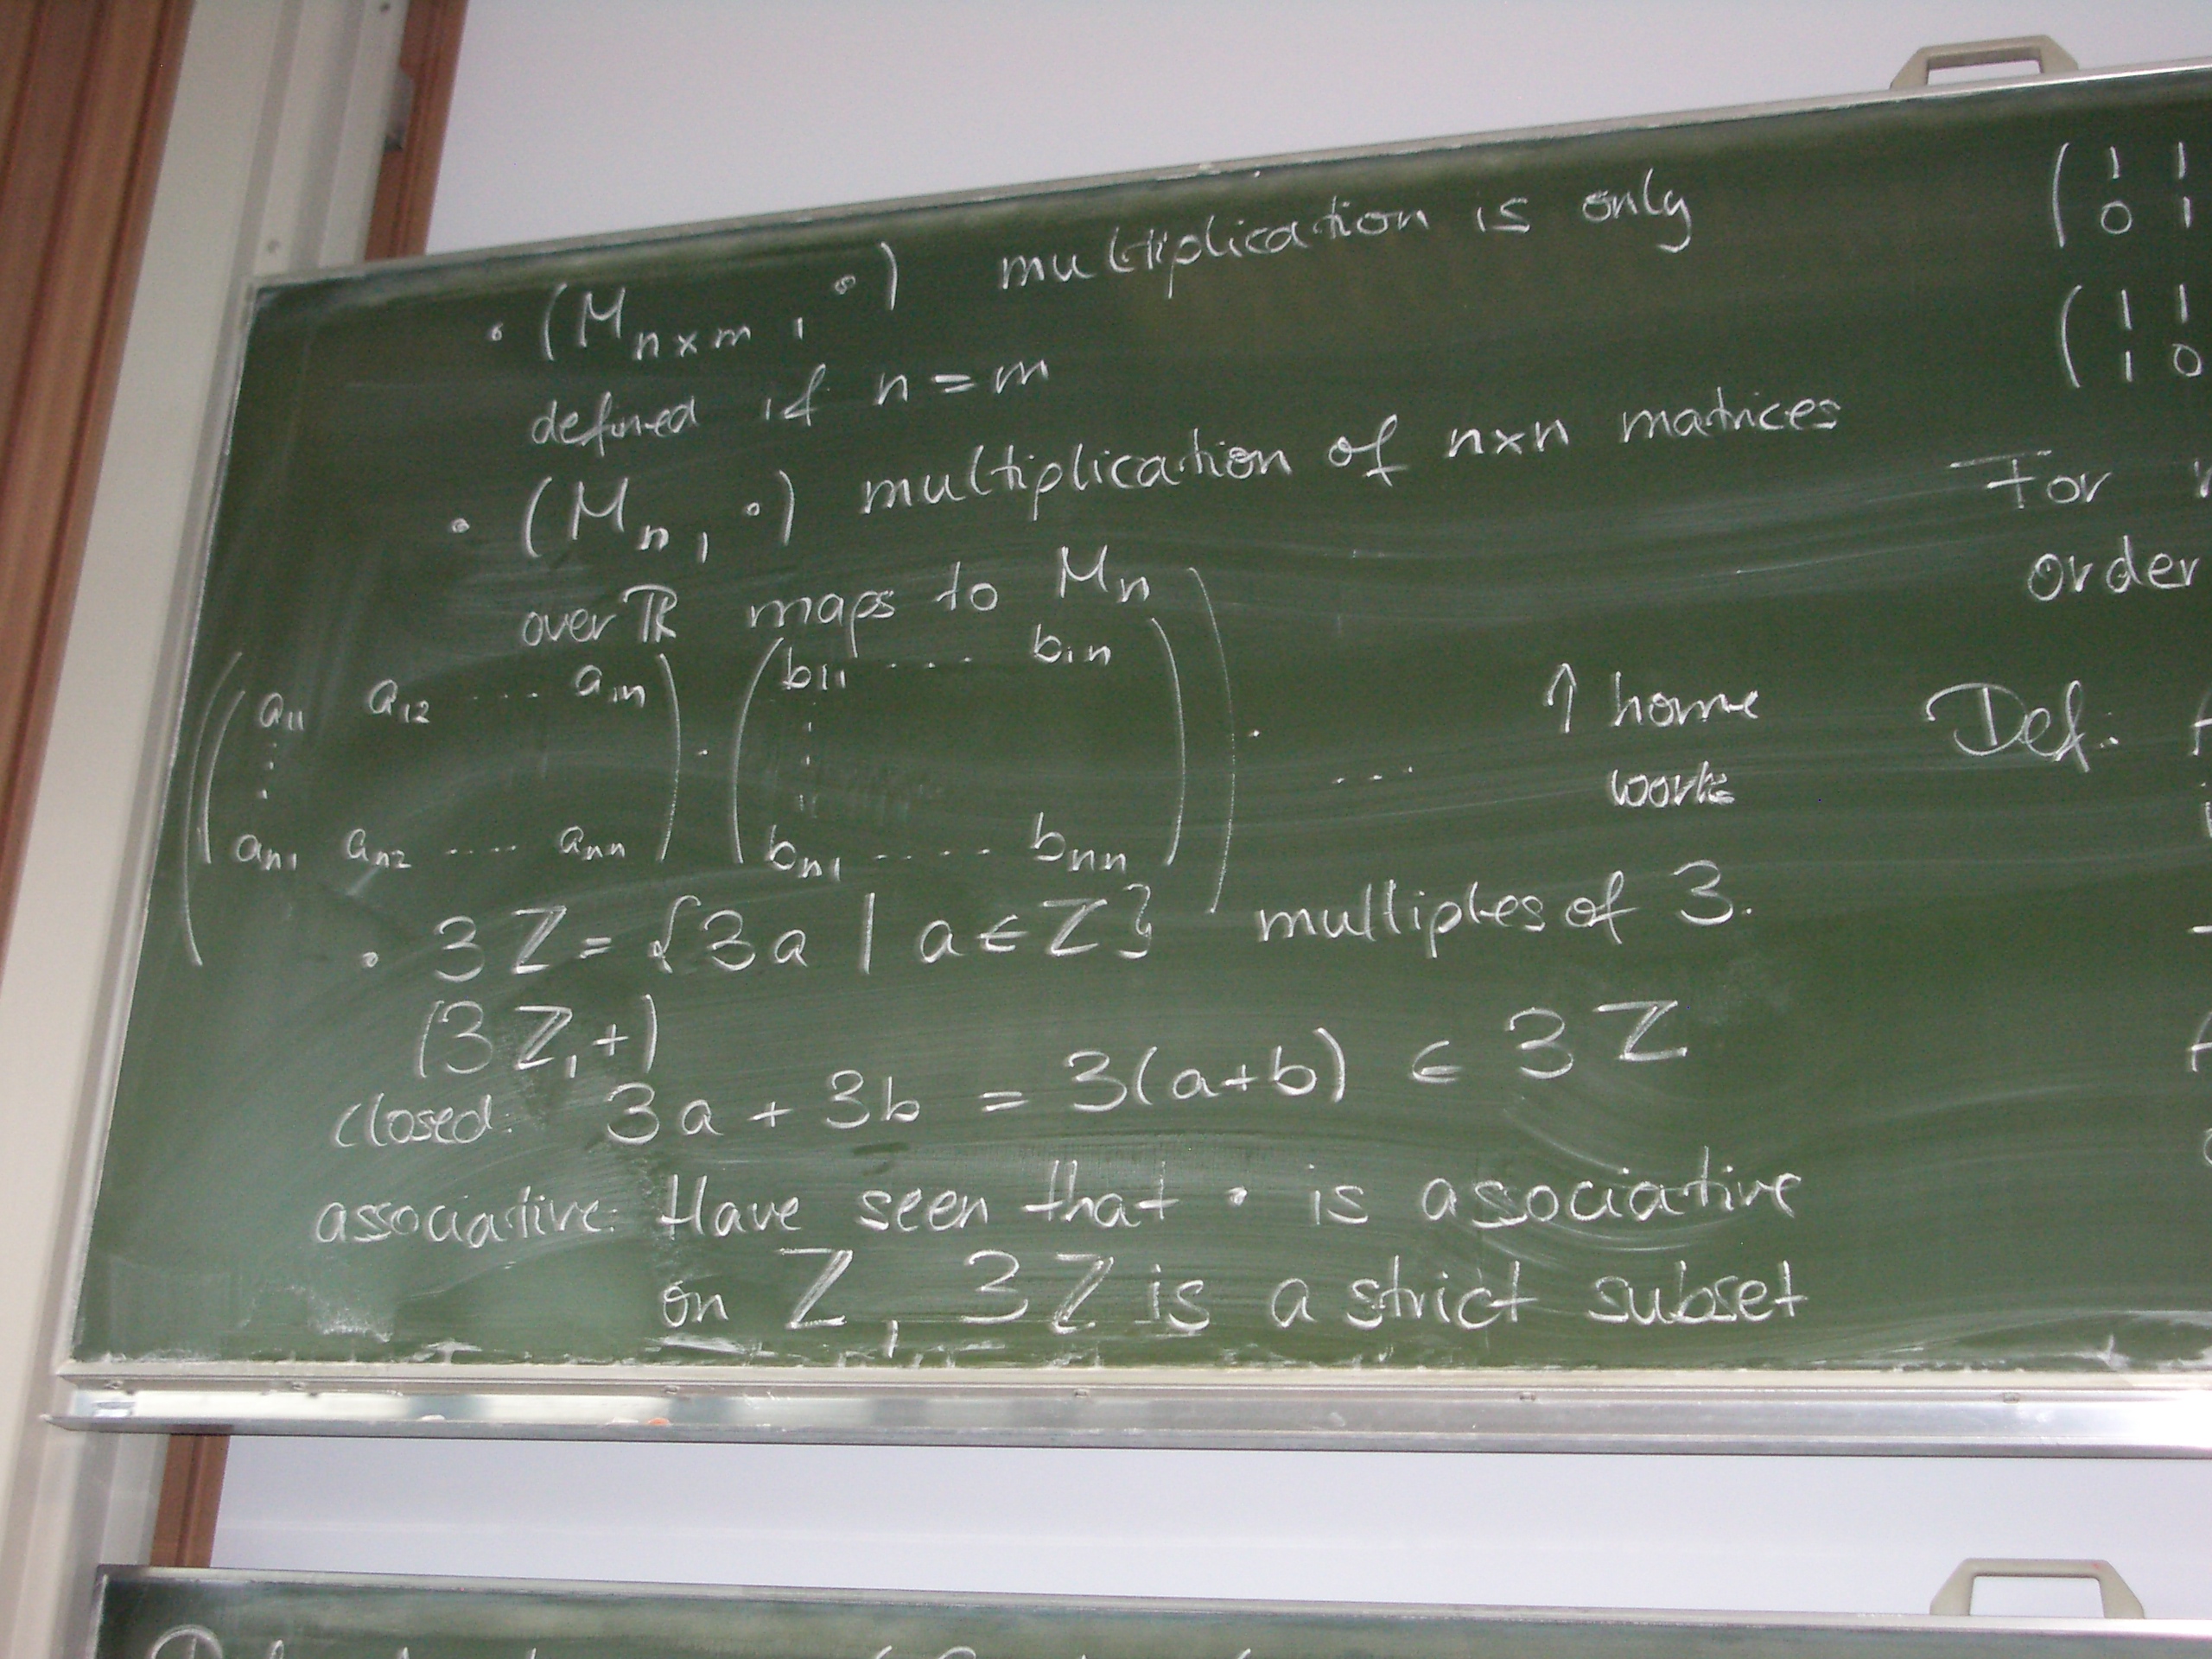 • (M_{n×m}, ∘) multiplication is only
defined if n = m
• (M_n, ∘) multiplication of n×n matrices
over ℝ maps to M_n
((a_{11} a_{12} .... a_{1n}) · (b_{11} .... b_{1n})) · ... ↑ home
⋮ ⋮ work
a_{n1} a_{n2} .... a_{nn} b_{n1} ..... b_{nn}
• 3ℤ = {3a | a ∈ ℤ} multiples of 3.
(3ℤ, +)
closed: 3a + 3b = 3(a+b) ∈ 3ℤ
associative: Have seen that • is associative
on ℤ, 3ℤ is a strict subset
( 1 1
0 1
( 1 1
1 0
For
order
Def: